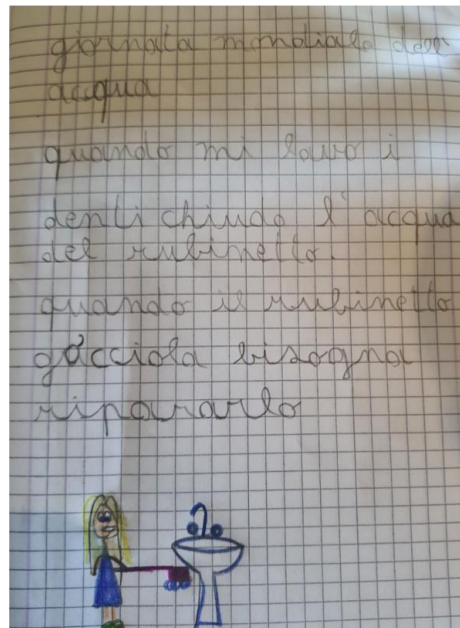 giornata mondiale dell'
acqua
quando mi lavo i
denti chiudo l'acqua
del rubinetto.
quando il rubinetto
gocciola bisogna
ripararlo